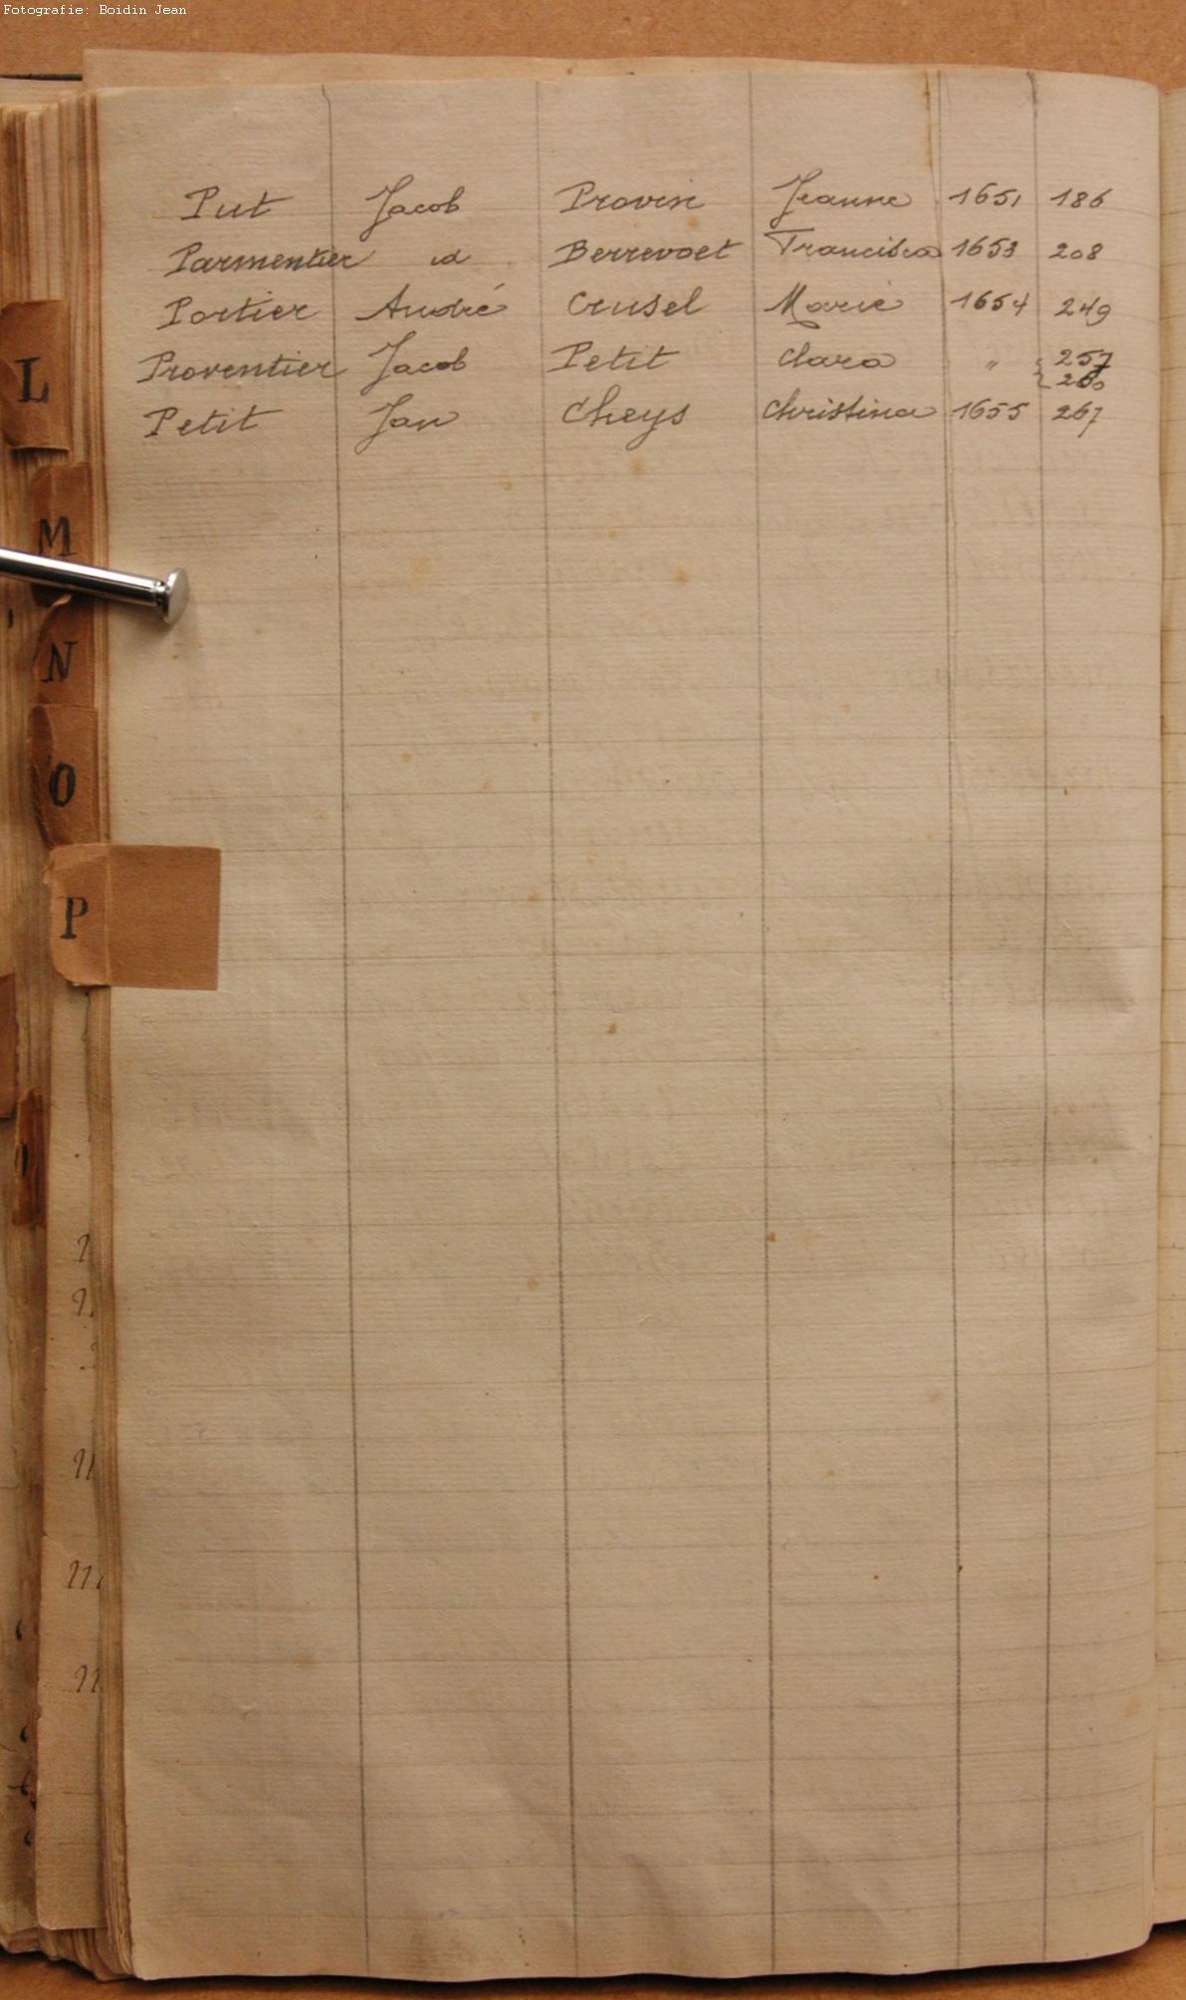 Fotografie: Boidin Jean
Put Jacob Provin Jeanne 1651 186
Parmentier id Berrevoet Francisca 1653 208
Portier André Crusel Marie 1654 249
Proventier Jacob Petit Clara " 257
260
Petit Jan Cheys Christina 1655 267
L
M
N
O
P